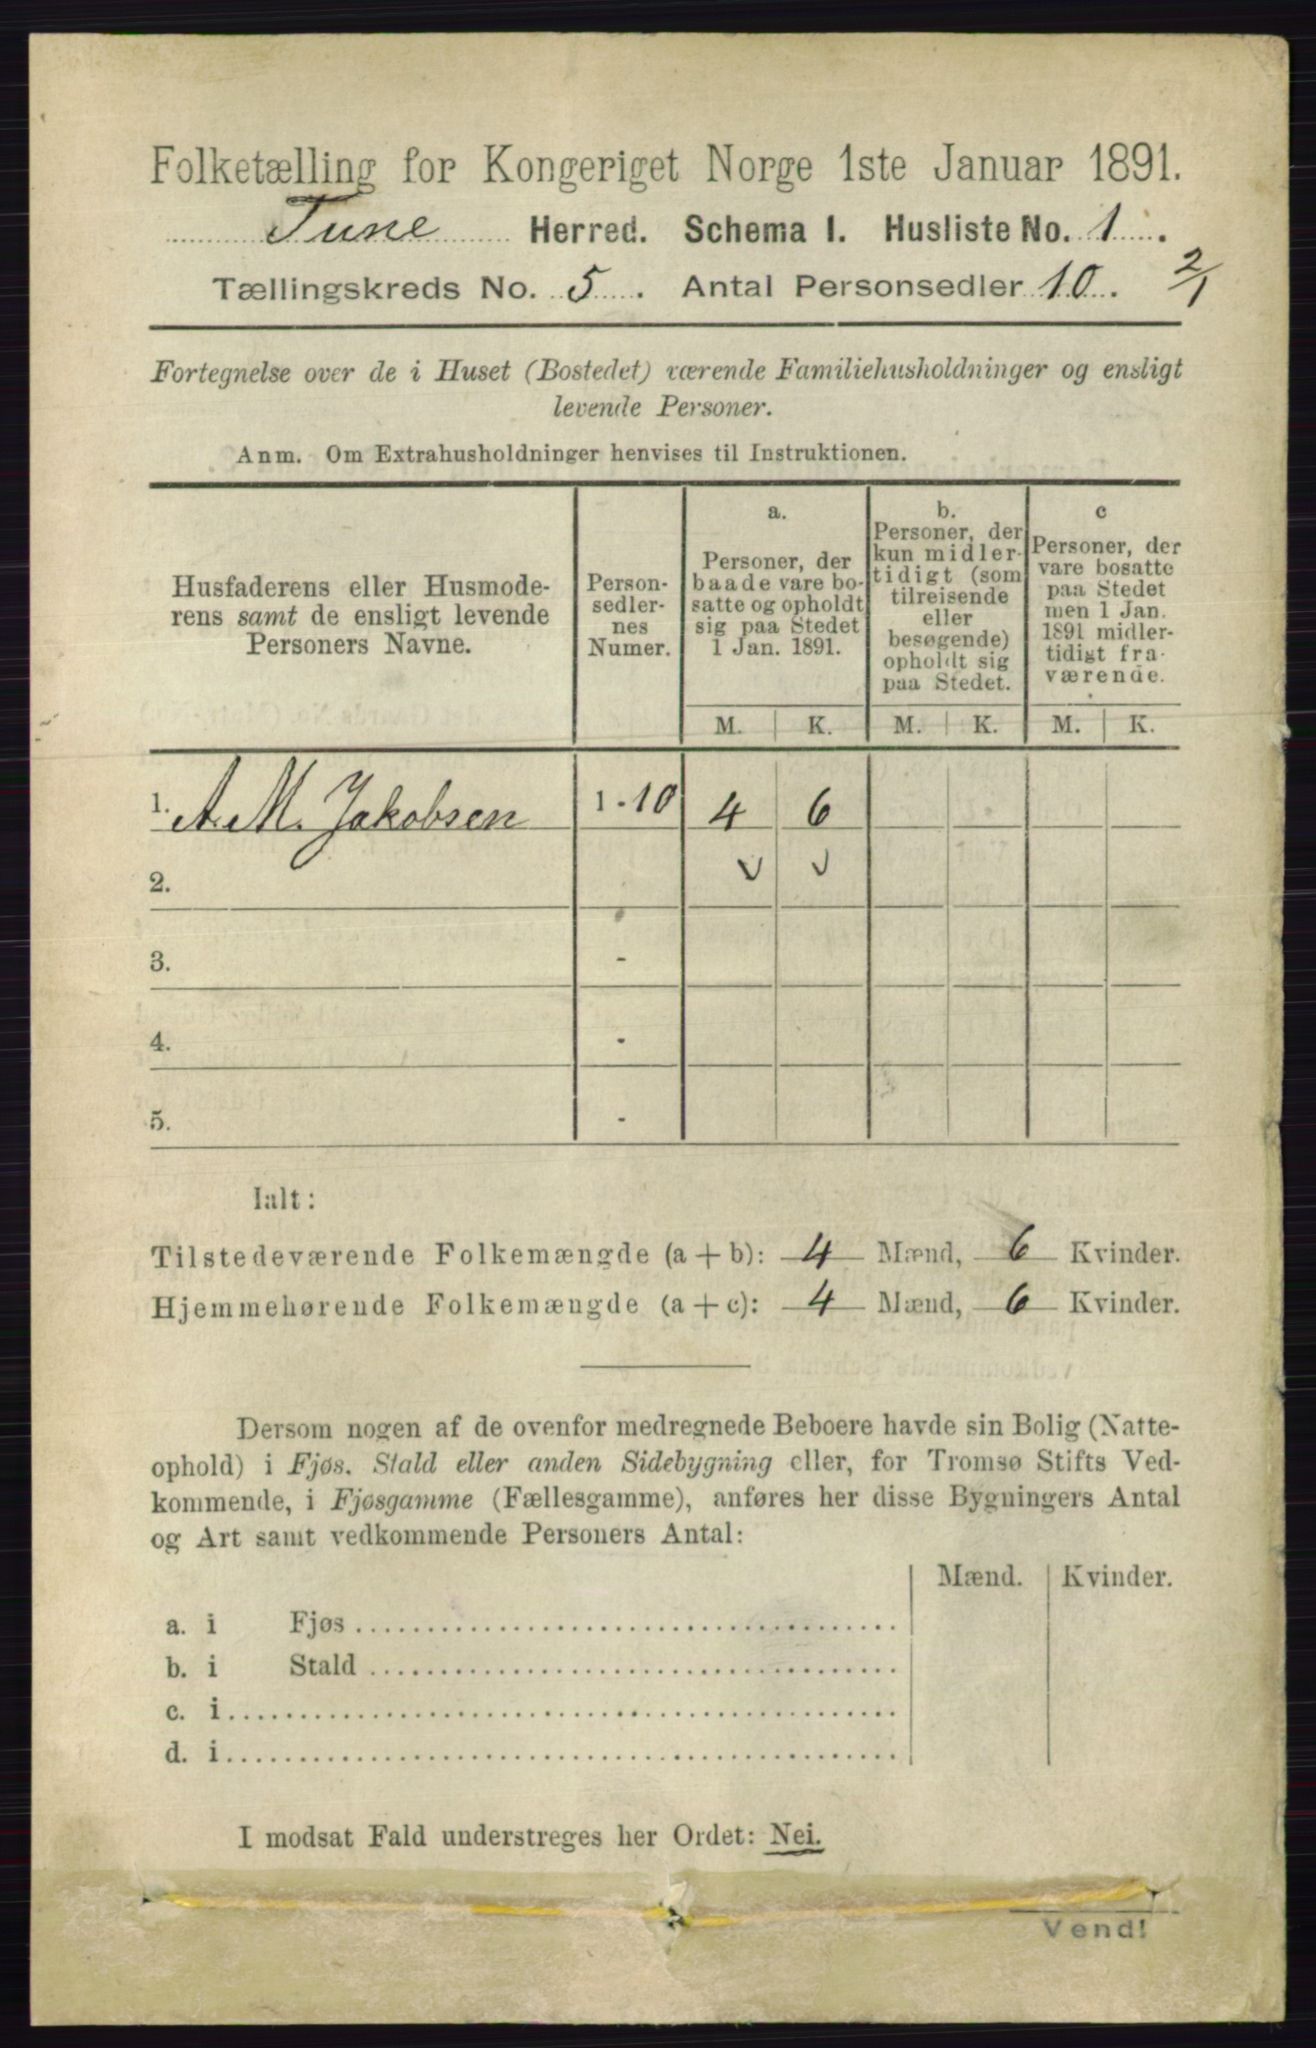 Folketælling for Kongeriget Norge 1ste Januar 1891.
Tune Herred. Schema I. Husliste No. 1.
Tællingskreds No. 5. Antal Personsedler 10. 2/1
Fortegnelse over de i Huset (Bostedet) værende Familiehusholdninger og ensligt
levende Personer.
Anm. Om Extrahusholdninger henvises til Instruktionen.
Husfaderens eller Husmode-
rens samt de ensligt levende
Personers Navne.
Person-
sedler-
nes
Numer.
a.
Personer, der
baade vare bo-
satte og opholdt
sig paa Stedet
1 Jan. 1891.
b.
Personer, der
kun midler-
tidigt (som
tilreisende
eller
besøgende)
opholdt sig
paa Stedet.
c
Personer, der
vare bosatte
paa Stedet
men 1 Jan.
1891 midler-
tidigt fra-
værende.
M. K. M. K. M. K.
1. A. M. Jakobsen 1 - 10 4 6
2.
3. -
4. -
5. -
Ialt:
Tilstedeværende Folkemængde (a + b): 4 Mænd, 6 Kvinder.
Hjemmehørende Folkemængde (a + c): 4 Mænd, 6 Kvinder.
Dersom nogen af de ovenfor medregnede Beboere havde sin Bolig (Natte-
ophold) i Fjøs, Stald eller anden Sidebygning eller, for Tromsø Stifts Ved-
kommende, i Fjøsgamme (Fællesgamme), anføres her disse Bygningers Antal
og Art samt vedkommende Personers Antal:
Mænd. Kvinder.
a. i Fjøs
b. i Stald
c. i
d. i
I modsat Fald understreges her Ordet: Nei.
Vend!